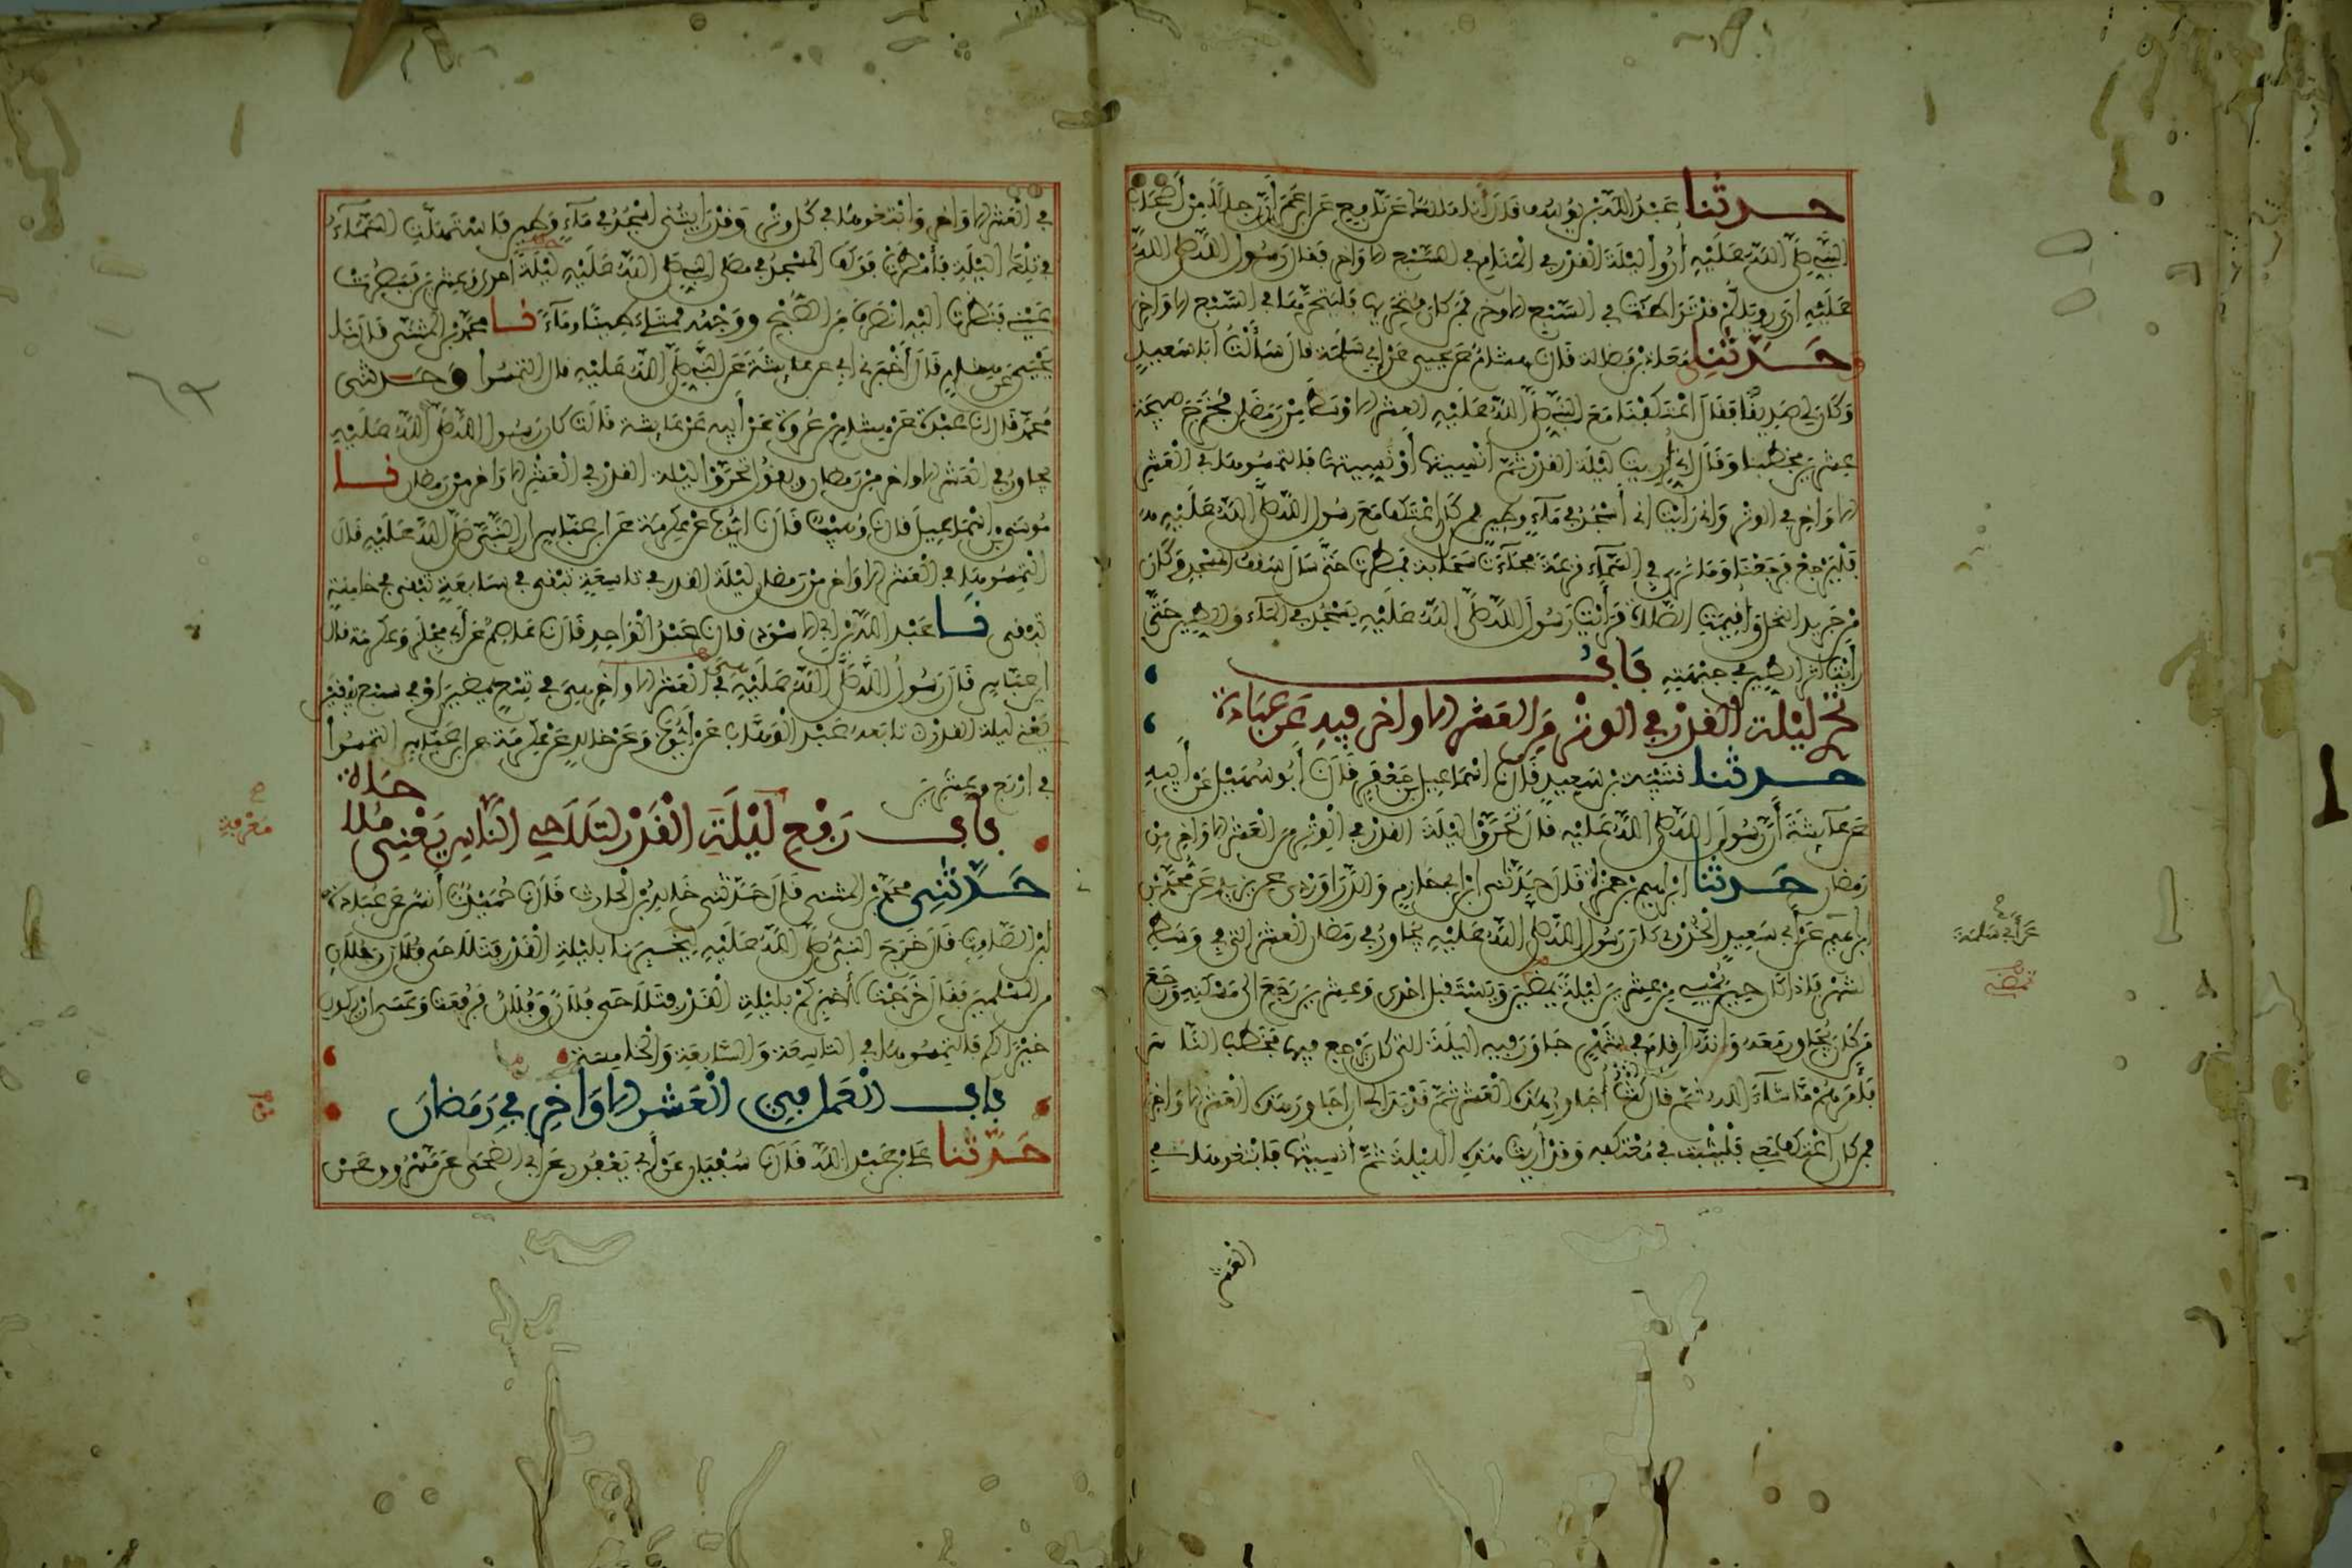 حدثنا عبد الله بن يوسف قال أنا ملك عن نافع عن ابن عمر أن رجالا من أصحاب
النبي صلى الله عليه أروا ليلة القدر في المنام في السبع الاواخر فقال رسول الله صلى الله
عليه أرى رؤياكم قد تواطت في السبع الاواخر فمن كان متحريها فليتحرها في السبع الاواخر
وحدثنا معاذ بن فضالة قال نا هشام عن يحيى عن أبي سلمة قال سألت أبا سعيد
وكان لي صديقا فقال اعتكفنا مع النبي صلى الله عليه العشر الاوسط من رمضان فخرج صبيحة
عشرين فخطبنا وقال إني أريت ليلة القدر ثم أنسيتها أو نسيتها فالتمسوها في العشر
الاواخر في الوتر وإني رأيت أني أسجد في ماء وطين فمن كان اعتكف مع رسول الله صلى الله عليه
فليرجع فرجعنا وما نرى في السماء قزعة فجاءت سحابة فمطرت حتى سال سقف المسجد وكان
من جريد النخل وأقيمت الصلاة فرأيت رسول الله صلى الله عليه يسجد في الماء والطين حتى
رأيت أثر الطين في جبهته باب
تحري ليلة القدر في الوتر من العشر الاواخر فيه عن عبادة
حدثنا قتيبة بن سعيد قال نا اسماعيل بن جعفر قال نا أبو سهيل عن أبيه
عن عايشة أن رسول الله صلى الله عليه قال تحروا ليلة القدر في الوتر من العشر الاواخر من
رمضان حدثنا ابراهيم بن حمزة قال حدثني ابن أبي حازم والدراوردي عن يزيد عن محمد بن
ابراهيم عن أبي سعيد الخدري كان رسول الله صلى الله عليه يجاور في رمضان العشر التي في وسط
الشهر فإذا كان حين يمسي من عشرين ليلة تمضين ويستقبل احدى وعشرين رجع الى مسكنه ورجع
من كان يجاور معه وأنه أقام في شهر جاور فيه الليلة التي كان يرجع فيها فخطب الناس
فأمرهم ما شاء الله ثم قال كنت أجاور هذه العشر ثم قد بدا لي أن أجاور هذه العشر الاواخر
فمن كان اعتكف معي فليثبت في معتكفه وقد أريت هذه الليلة ثم أنسيتها فابتغوها
عن أبي سلمة
العشر
في العشر الاواخر وابتغوها في كل وتر وقد رأيتني أسجد في ماء وطين فاستهلت السماء
في تلك الليلة فأمطرت فوكف المسجد في مصلى النبي صلى الله عليه ليلة احدى وعشرين فبصرت
عيني فنظرت اليه انصرف من الصبح ووجهه ممتلئ طينا وماء نا محمد بن المثنى قال نا
يحيى عن هشام قال أخبرني أبي عن عايشة عن النبي صلى الله عليه قال التمسوا وحدثني
محمد قال نا عبدة عن هشام بن عروة عن أبيه عن عايشة قالت كان رسول الله صلى الله عليه
يجاور في العشر الاواخر من رمضان ويقول تحروا ليلة القدر في العشر الاواخر من رمضان نا
موسى بن اسماعيل قال نا وهيب قال نا أيوب عن عكرمة عن ابن عباس أن النبي صلى الله عليه قال
التمسوها في العشر الاواخر من رمضان ليلة القدر في تاسعة تبقى في سابعة تبقى في خامسة
تبقى نا عبد الله بن أبي الاسود قال نا عبد الواحد قال نا عاصم عن أبي مجلز وعكرمة قال
ابن عباس قال رسول الله صلى الله عليه هي في العشر الاواخر هي في تسع يمضين أو في سبع يبقين
يعني ليلة القدر تابعه عبد الوهاب عن أيوب وعن خالد عن عكرمة عن ابن عباس التمسوا
في أربع وعشرين
باب رفع ليلة القدر لتلاحي الناس يعني ملاحاة
حدثني محمد بن المثنى قال حدثني خالد بن الحارث قال نا حميد نا أنس عن عبادة
ابن الصامت قال خرج النبي صلى الله عليه ليخبرنا بليلة القدر فتلاحى رجلان
من المسلمين فقال خرجت لأخبركم بليلة القدر فتلاحى فلان وفلان فرفعت وعسى أن يكون
خيرا لكم فالتمسوها في التاسعة والسابعة والخامسة
باب العمل في العشر الاواخر في رمضان
حدثنا علي بن عبد الله قال نا سفيان عن أبي يعفور عن أبي الضحى عن مسروق عن